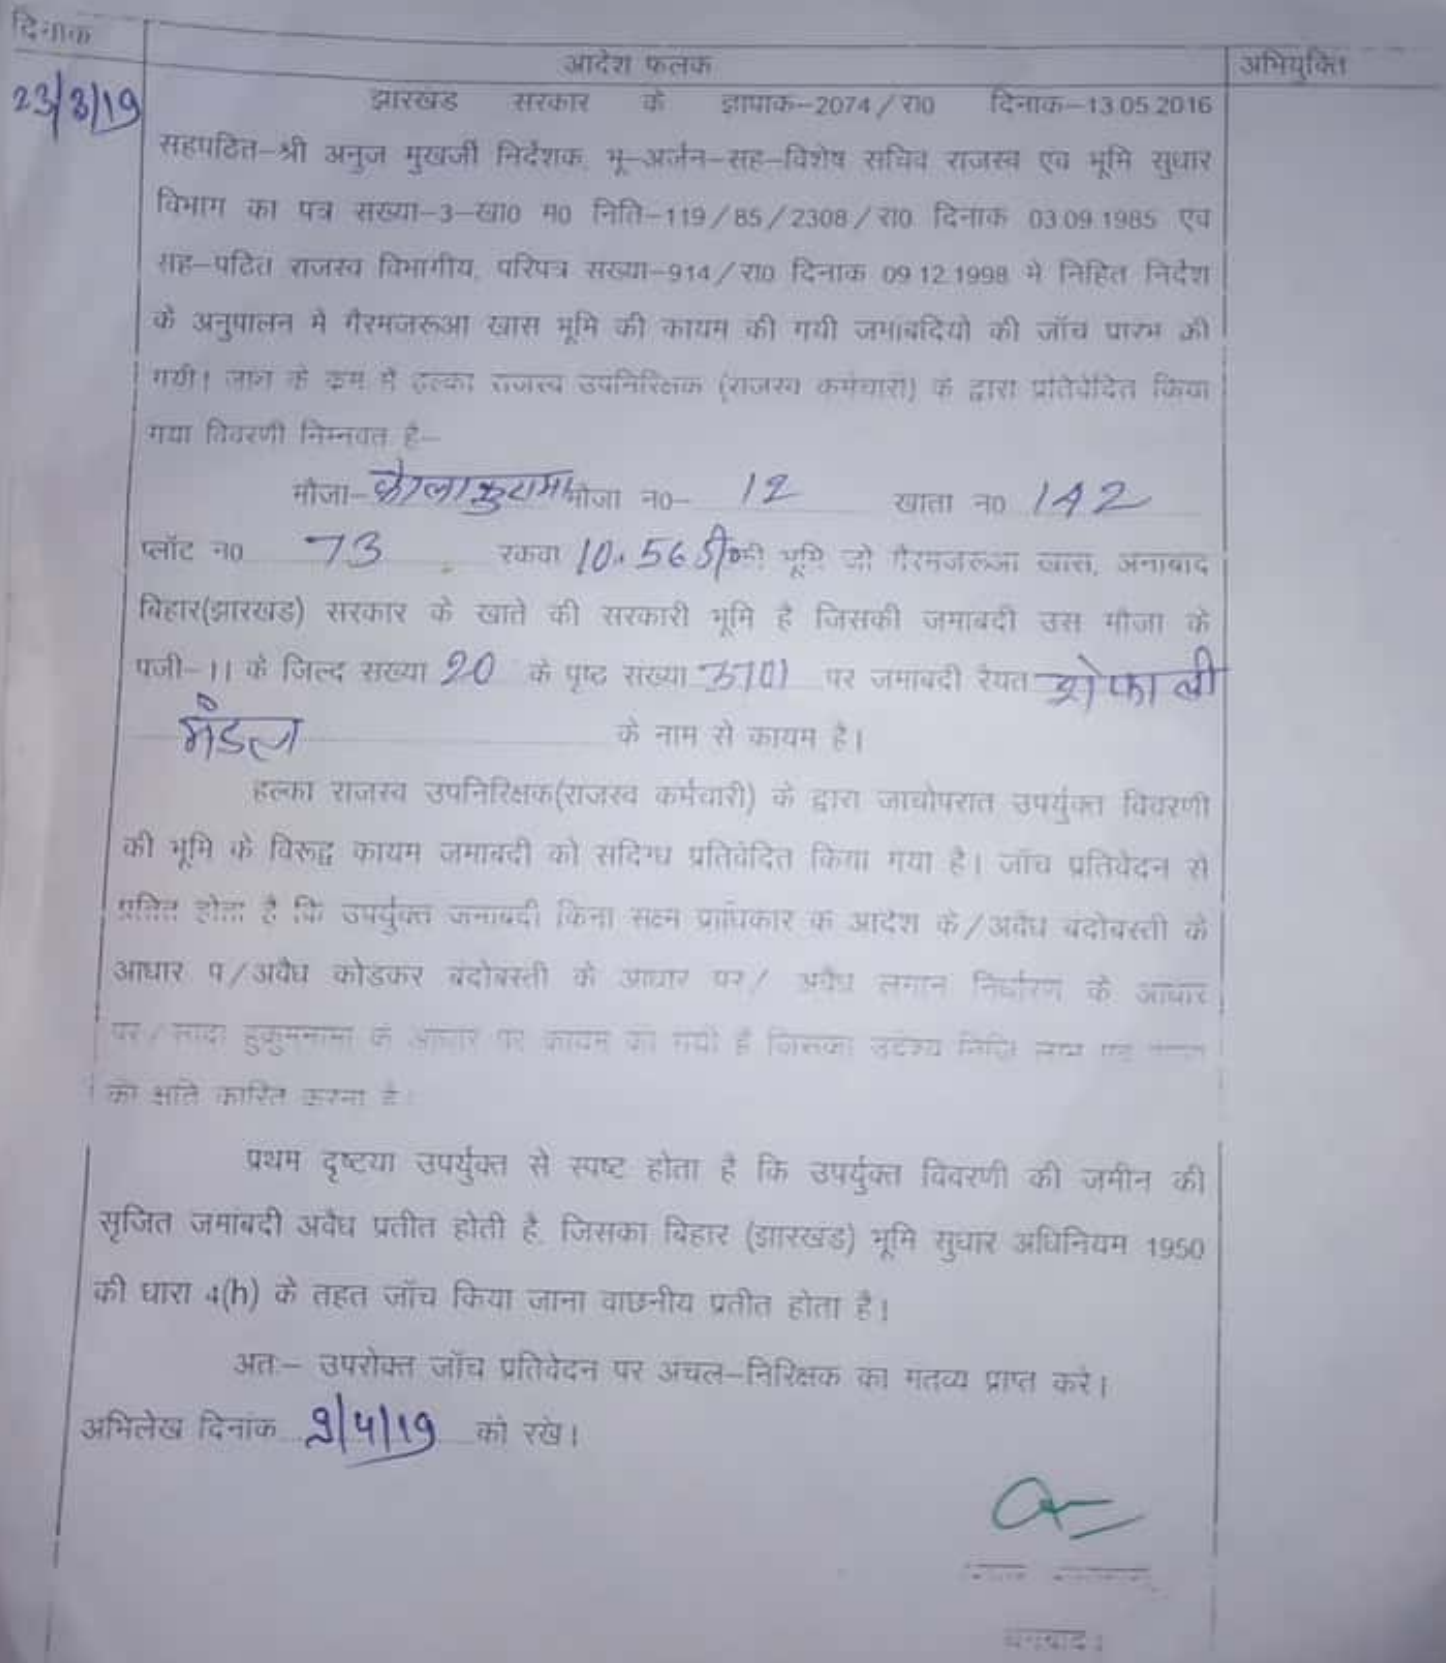 दिनाक
आदेश फलक
अभियुक्ति
23/3/19
झारखंड सरकार के ज्ञापाक-2074/रा0 दिनाक-13.05.2016
सहपठित-श्री अनुज मुखर्जी निर्देशक, भू-अर्जन-सह-विशेष सचिव राजस्व एवं भूमि सुधार
विभाग का पत्र सख्या-3-खा0 म0 निति-119/85/2308/रा0 दिनाक 03.09.1985 एव
सह-पठित राजस्व विभागीय, परिपत्र सख्या-914/रा0 दिनाक 09.12.1998 मे निहित निर्देश
के अनुपालन मे गैरमजरूआ खास भूमि की कायम की गयी जमाबदियो की जॉच प्रारम की
गयी। जाच के क्रम में हल्का राजस्व उपनिरिक्षक (राजस्व कर्मचारी) के द्वारा प्रतिवेदित किया
गया विवरणी निम्नवत है-
मौजा- मौजा न0- 12 खाता न0 142
प्लॉट न0 73 रकवा 10.56 की भूमि जो गैरमजरूआ खास, अनाबाद
बिहार(झारखड) सरकार के खाते की सरकारी भूमि है जिसकी जमाबदी उस मौजा के
पजी-11 के जिल्द सख्या 20 के पृष्ट संख्या 3701 पर जमाबदी रैयत शेफाली
मंडल के नाम से कायम है।
हल्का राजस्व उपनिरिक्षक(राजस्व कर्मचारी) के द्वारा जाचोपरात उपर्युक्त विवरणी
की भूमि के विरूद्ध कायम जमाबदी को सदिग्ध प्रतिवेदित किया गया है। जॉच प्रतिवेदन से
प्रतित होता है कि उपर्युक्त जमाबदी बिना सक्ष्म प्राधिकार के आदेश के/अवैध बंदोबस्ती के
आधार प/अवैध कोडकर बंदोबस्ती के आधार पर/ अवैध लगान निर्धारण के आधार
पर/सादा हुकुमनामा के आधार पर कायम की गयी है जिसका उदेश्य निजि लाभ
को क्षति कारित करना है।
प्रथम दृष्टया उपर्युक्त से स्पष्ट होता है कि उपर्युक्त विवरणी की जमीन की
सृजित जमांबदी अवैध प्रतीत होती है, जिसका बिहार (झारखंड) भूमि सुधार अधिनियम 1950
की धारा 4(h) के तहत जॉच किया जाना वाछनीय प्रतीत होता है।
अतः- उपरोक्त जॉच प्रतिवेदन पर अचल-निरिक्षक का मतव्य प्राप्त करे।
अभिलेख दिनांक 9/4/19 को रखे।
धनबाद।